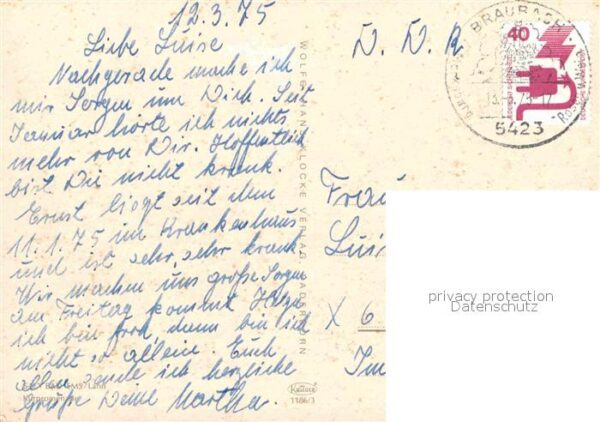 12.3.75
Liebe Luise
Nachgerade mache ich
mir Sorgen um Dich. Seit
Januar hörte ich nichts
mehr von Dir. Hoffentlich
bist Du nicht krank.
Ernst liegt seit dem
11.1.75 im Krankenhaus
und ist sehr, sehr krank.
Wir machen uns große Sorgen
am Freitag kommt Helga
ich bin froh, dann bin ich
nicht so allein. Euch
allen sende ich herzliche
Grüße Deine Martha.
WOLFGANG LOCKE VERLAG PADERBORN
Kurpromenade
1186/3
D. D. R
BRAUBACH
5423
40
DEUTSCHE BUNDESPOST
Frau
Luise
X 6
Im
privacy protection
Datenschutz